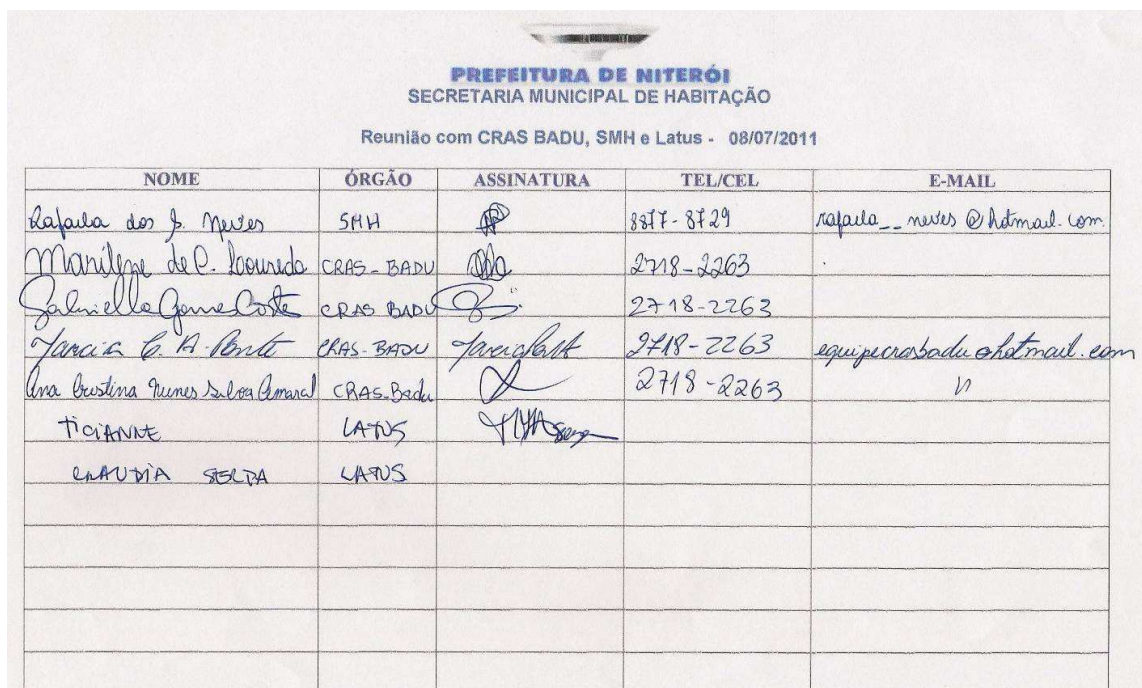 PREFEITURA DE NITERÓI
SECRETARIA MUNICIPAL DE HABITAÇÃO
Reunião com CRAS BADU, SMH e Latus - 08/07/2011
NOME ÓRGÃO ASSINATURA TEL/CEL E-MAIL
Rafaela dos S. Neves SMH 8877-8729 rafaela__neves@hotmail.com
Marilene de C. Loureda CRAS-BADU 2718-2263
Gabriella Gomes Cortes CRAS BADU 2718-2263
Marcia C. A. Ponte CRAS-BADU 2718-2263 equipecrasbadu@hotmail.com
Ana Cristina Nunes Silva Amaral CRAS-Badu 2718-2263 "
TICIANNE LATUS
CLAUDIA SERPA LATUS